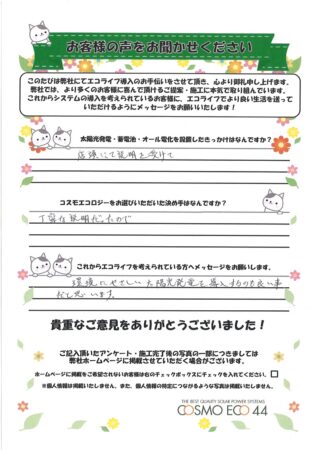 お客様の声をお聞かせください
このたびは弊社にてエコライフ導入のお手伝いをさせて頂き、心より御礼申し上げます。
弊社では、より多くのお客様に喜んで頂けるご提案・施工に本気で取り組んでいます。
これからシステムの導入を考えられているお客様に、エコライフでより良い生活を送って
いただけるようにメッセージをお願いいたします！
太陽光発電・蓄電池・オール電化を設置したきっかけはなんですか？
店頭にて説明を受けて
コスモエコロジーをお選びいただいた決め手はなんですか？
丁寧な説明だったので
これからエコライフを考えられている方へメッセージをお願いします。
環境にやさしい太陽光発電を導入するのも良い事
だと思います。
貴重なご意見をありがとうございました！
ご記入頂いたアンケート・施工完了後の写真の一部につきましては
弊社ホームページへ掲載させていただく場合がございます。
ホームページに掲載をご希望されないお客様は右のチェックボックスにチェックを入れてください。
※個人情報は掲載いたしません。また、個人情報の特定につながるような写真は掲載いたしません。
THE BEST QUALITY SOLAR POWER SYSTEMS
COSMO ECO 44